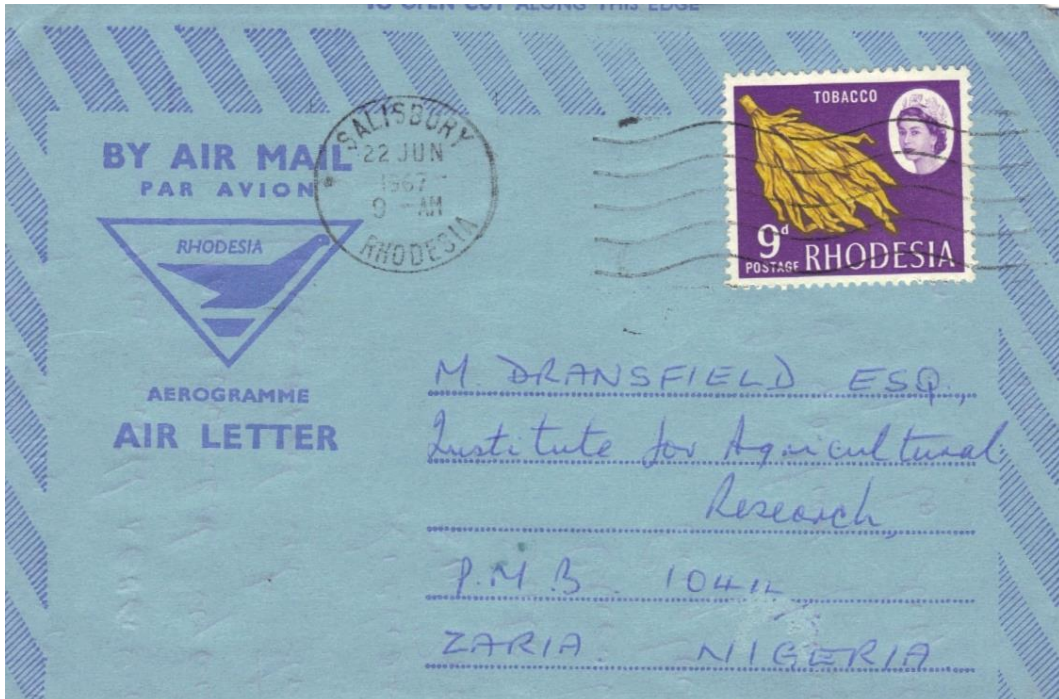 TO OPEN CUT ALONG THIS EDGE
BY AIR MAIL
PAR AVION
RHODESIA
AEROGRAMME
AIR LETTER
SALISBURY
22 JUN
1967
9 - AM
RHODESIA
TOBACCO
9d
POSTAGE RHODESIA
M. DRANSFIELD ESQ.,
Institute for Agricultural
Research,
P.M.B. 1044
ZARIA. NIGERIA.